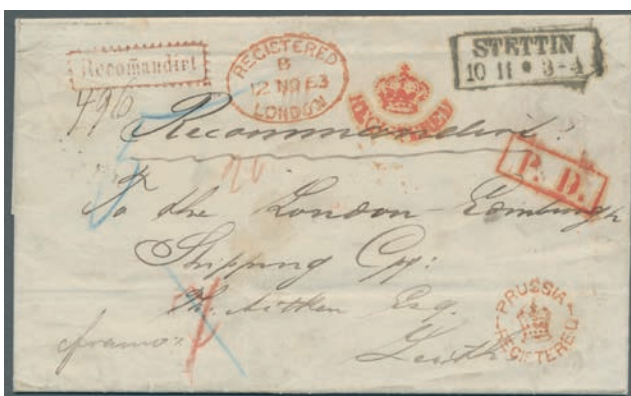 Recom̄andirt
REGISTERED
B
12 NO 63
LONDON
REGISTERED
STETTIN
10 11 * 3-4
496
Recommandirt!
P. D.
20
To the London Edinburgh
Shipping Cpy:
Th. Aitken Esq.
Leith
franco
PRUSSIA
REGISTERED